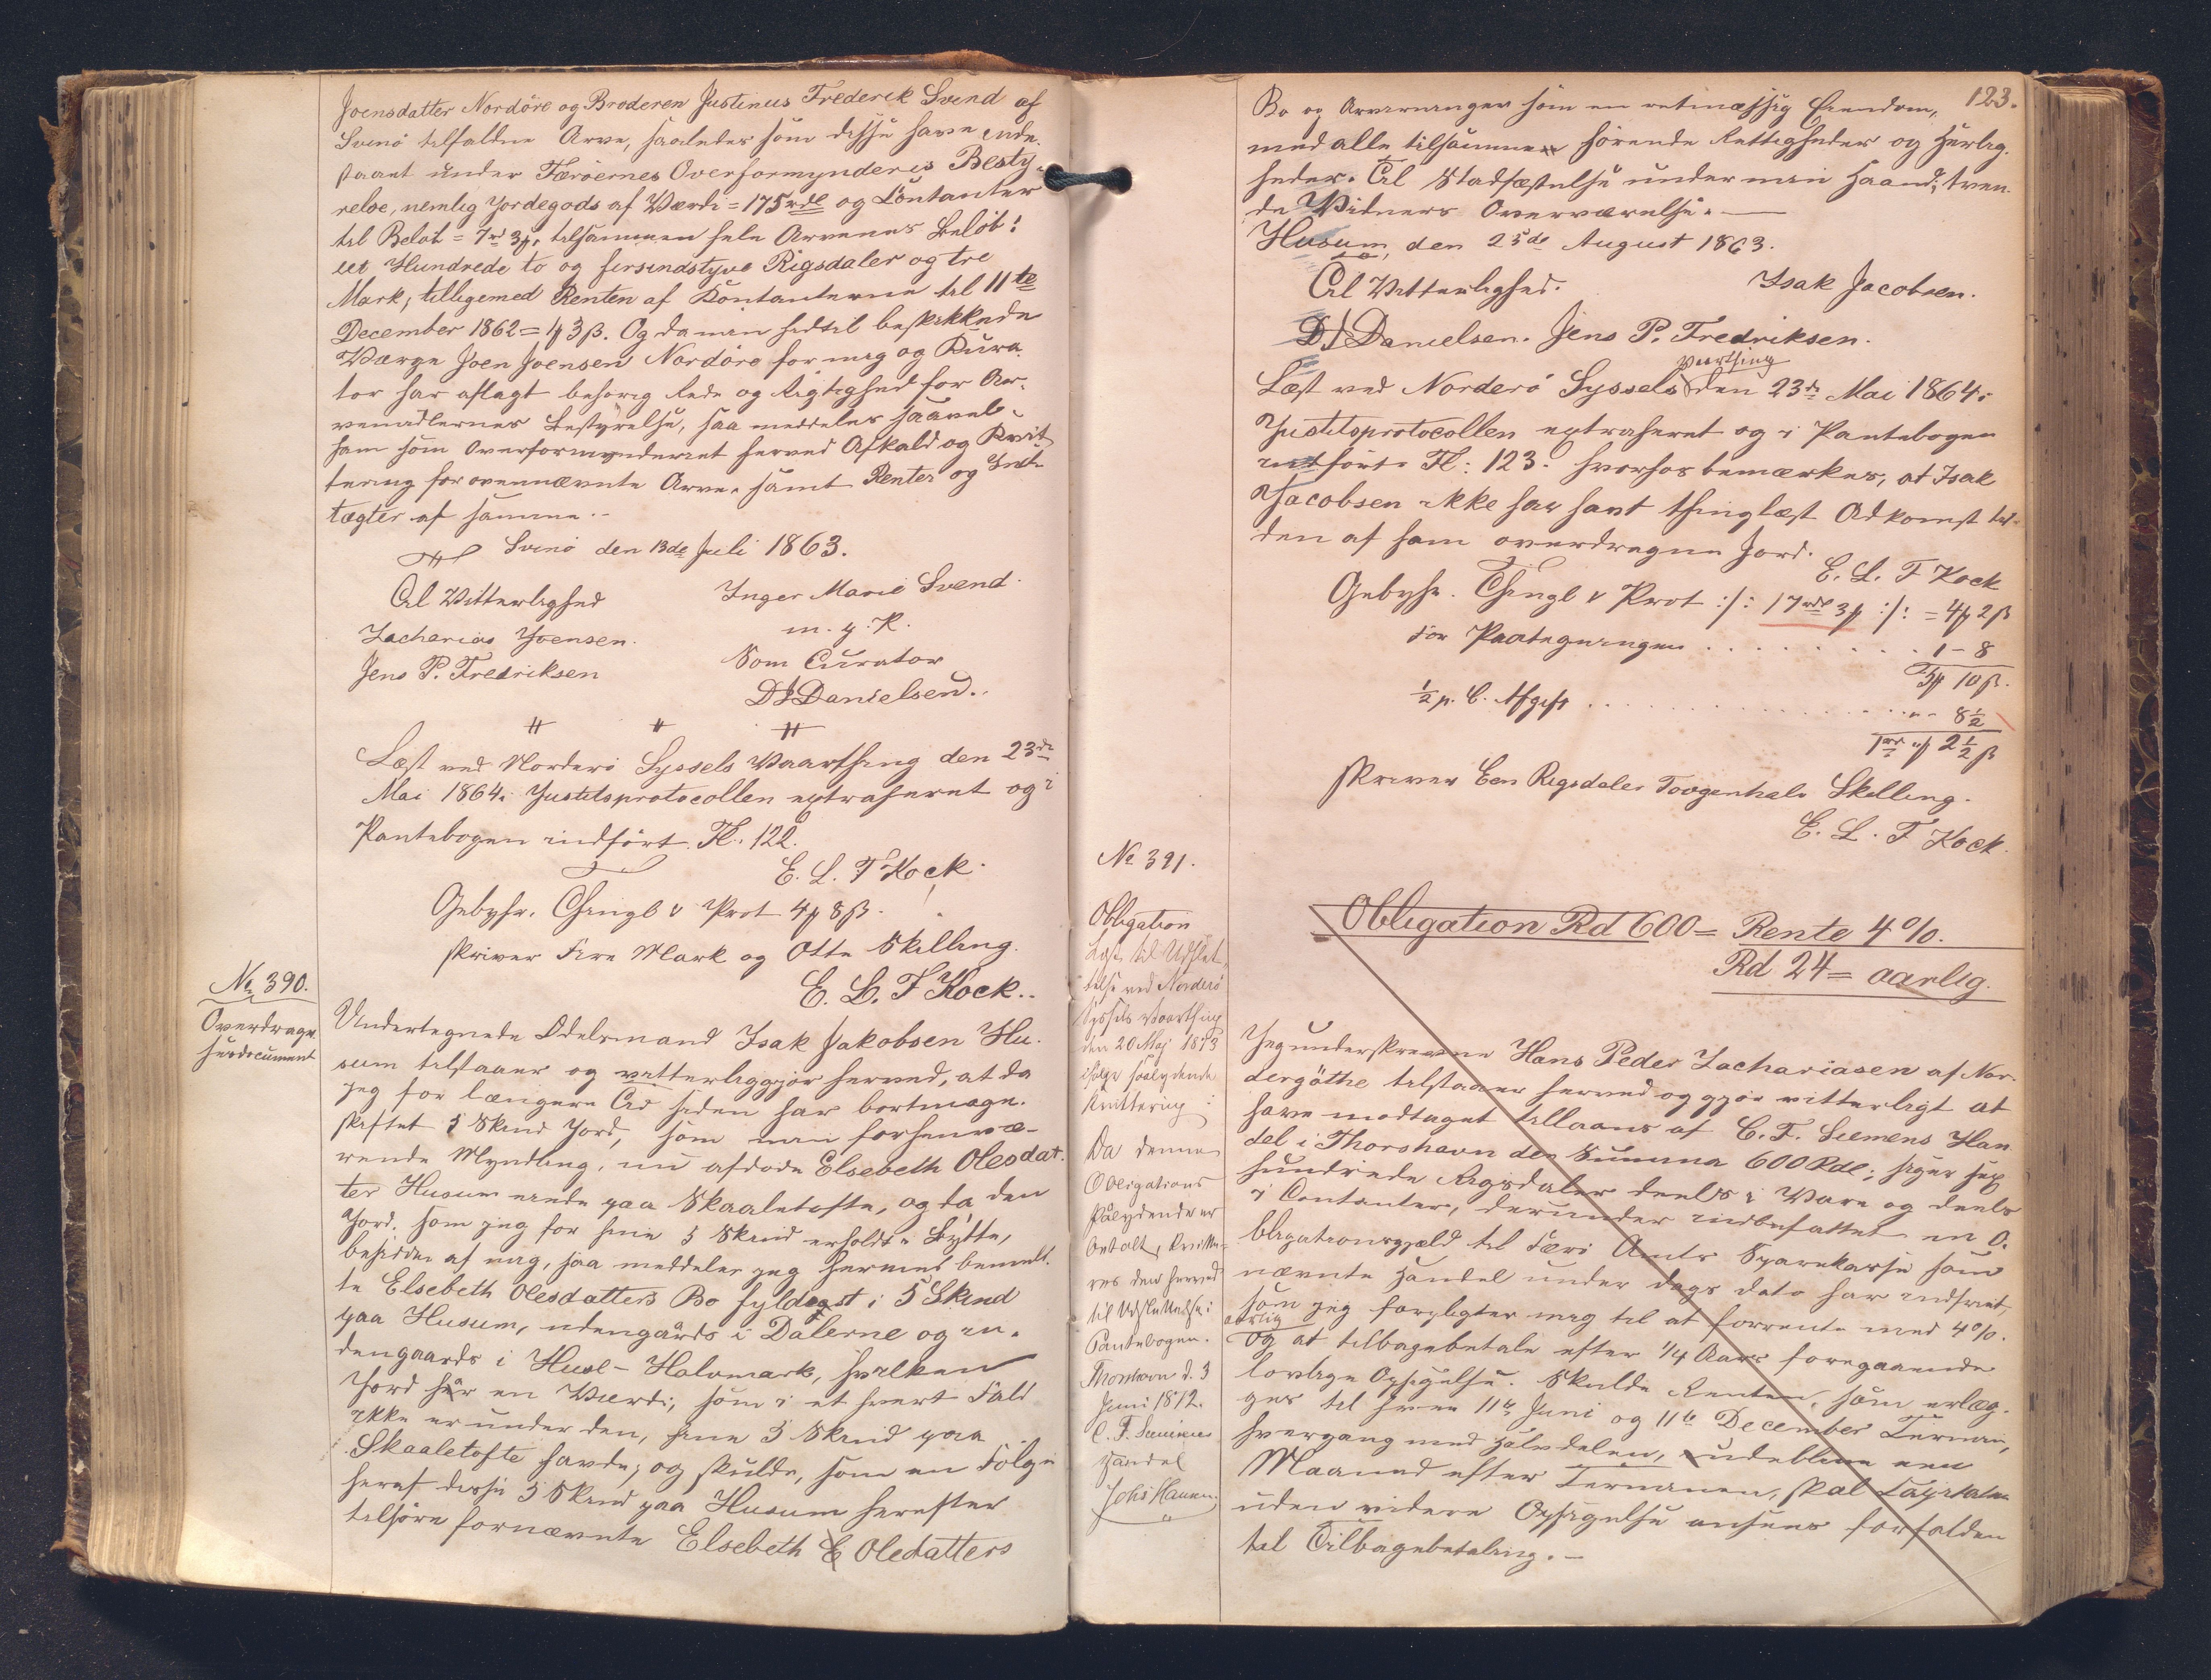 Joensdatter Nordöre og Broderen Justinus Frederik Svend af
Svinö tilfaldne Arve, saaledes som disse have inde-
staaet under Færöernes Overformynderies Besty-
relse, nemlig Jordegods af Værdi = 175 rdl og Contanter
til Belöb = 7 rd 3 m, tilsammen hele Arvenes Belöb:
eet Hundrede to og firsindstyve Rigsdaler og tre
Mark, tilligemed Renten af Kontanterne til 11te
December 1862 = 1 m 3 ß. Og da min hidtil beskikkede
Værge Joen Joensen Nordöre for mig og Kura-
tor har aflagt behörig Rede og Rigtighed for Ar-
vemidlernes Bestyrelse, saa meddeles saavel
ham som Overformynderiet herved Afkald og Kvit-
tering for ovennævnte Arve, samt Renter og Ind-
tægter af samme.-
Svinö den 13de Juli 1863.
Til Vitterlighed
Inger Marie Svend
Zacharias Joensen.
m. f. P.
Jens P. Fredriksen
Som Curator
D J Danielsen.
Læst ved Norderö Syssels Vaarthing den 23de
Mai 1864. Justitsprotocollen extraheret og i
Pantebogen indfört Fl. 122.
E. L. T Kock.
Gebyhr. Thingl & Prot 4 m 8 ß.
skriver Fire Mark og Otte Skilling.
E. L. T Kock..
No 390.
Overdragel-
sesdocument
Undertegnede Odelsmand Isak Jakobsen Hu-
sum tilstaaer og vitterliggjör herved, at da
jeg for længere Tid siden har bortmage-
skiftet 3 Skind Jord, som min forhenvæ-
rende Myndling, nu afdöde Elsebeth Olesdat-
ter Husum eiede paa Skaaletofte, og da den
Jord, som jeg for hine 3 Skind erholdt i Bytte,
besiddes af mig, saa meddeler jeg hermed bemeld-
te Elsebeth Olesdatters Bo fyldegst i 5 Skind
paa Husum, udengaards i Dalerne og in-
dengaards i Huse-Halvmark, hvilken
Jord har en Værdi, som i et hvert Fald
ikke er under den, hine 3 Skind paa
Skaaletofte havde; og skulde, som en Fölge
heraf disse 5 Skind paa Husum herefter
tilhöre fornævnte Elsebeth E Oledatters
123.
Bo og Arvinger som en retmæssig Eiendom,
med alle tilsammen hörende Rettigheder og Herlig-
heder. Til Stadfæstelse under min Haand, i tven-
de Vidners Overværelse.
Husum, den 25de August 1863.
Til Vitterlighed.
Isak Jacobsen.
D J Danielsen. Jens P. Fredriksen.
Vaarthing
Læst ved Norderö Syssels den 23de Mai 1864.
Justitsprotocollen extraheret og i Pantebogen
indfört Fl: 123. hvorhos bemærkes, at Isak
Jacobsen ikke har havt thinglæst Adkomst til
den af ham overdragne Jord.
E. L. T Kock
Gebyhr. Thingl & Prot :/: 17 rdl 3 m :/: = 4 m 2 ß
for Paategningen . . . . . . . . 1 - 8
5 m 10 ß.
½ p. C. Afgift . . . . . . . . . . . . . . „ - 8½
1 rd „ m 2½ ß
skriver Een Rigsdaler Tooghalv Skilling.
E. L. T Kock.
No 391.
Obligation
Læst til Udslet-
telse ved Norderö
Syssels Vaarthing
den 20 Maj 1873
ifölge saalydende
Kvittering:
Da denne
Obligations
Paalydende er
betalt, kvitte-
res den herved
til Udslettelse i
Pantebogen.
Thorshavn d. 3
Juni 1872.
C. F. Siemens
Handel
Obligation Rd 600 = Rente 4 %.
Rd 24 = aarlig.
Jeg underskrevne Hans Peder Zachariasen af Nor-
dergöthe tilstaaer herved og gjör vitterligt at
have modtaget tillaans af C. F. Siemens Han-
del i Thorshavn den Summa 600 Rdl; siger sex
hundrede Rigsdaler deels i Vare og deels
i Contanter, derunder indbefattet en O-
bligationsgjæld til Færö Amts Sparekasse som
nævnte Handel under Dags dato har indfriet,
som jeg forpligter mig til at forrente med 4 %.
aarlig
og at tilbagebetale efter ¼ Aars foregaaende
lovlige Opsigelse. Skulde Renten, som erlæg-
ges til hver 11te Juni og 11te December Termin,
hvergang med Halvdelen, udeblive een
Maaned efter Terminen, skal Capitalen
uden videre Opsigelse ansees forfalden
til Tilbagebetaling.-